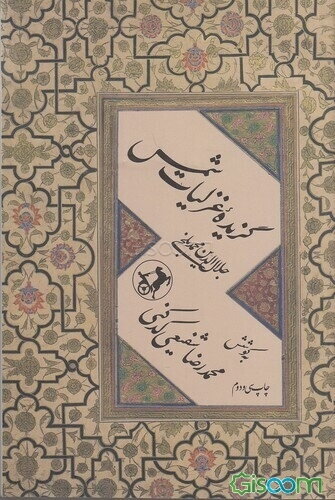 گزیدهٔ غزلیات شمس
جلال‌الدین محمد بلخی
بکوشش
محمدرضا شفیعی کدکنی
چاپ سی و دوم
Gisoom.com